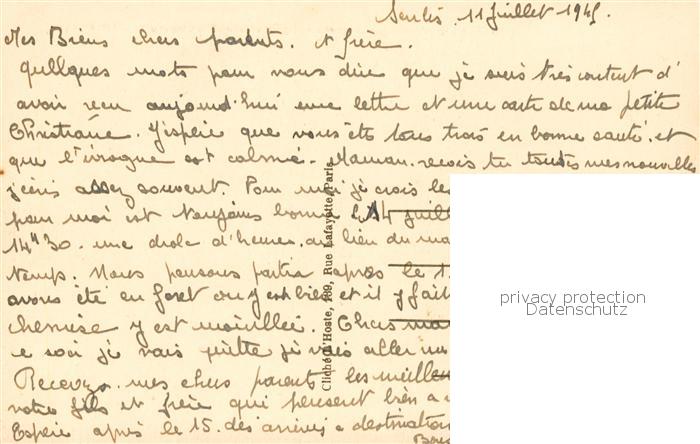 Senlis, 11 Juillet 1945.
Mes Biens chers parents. et frère.
quelques mots pour vous dire que je suis très content d'
avoir reçu aujourd'hui une lettre et une carte de ma petite
Christiane. J'espère que vous êtes tous trois en bonne santé. et
que l'ivrogne est calmé. Maman. reçois tu toutes mes nouvelles
j'écris assez souvent. Pour moi je crois
pour moi est toujours bonne le 14 juill
14h30. une drole d'heure. au lieu du ma
temps. Nous pensons partir après le
avons été en foret on y est bien et il y fait
chemise y est mouillée. Chers
e soir je vais
Recevez. mes chers parents les meille
votre fils et frère qui pensent bien a
Espère après le 15. des destination
Cliché d'Hoste, Rue Lafayette, Paris
privacy protection
Datenschutz